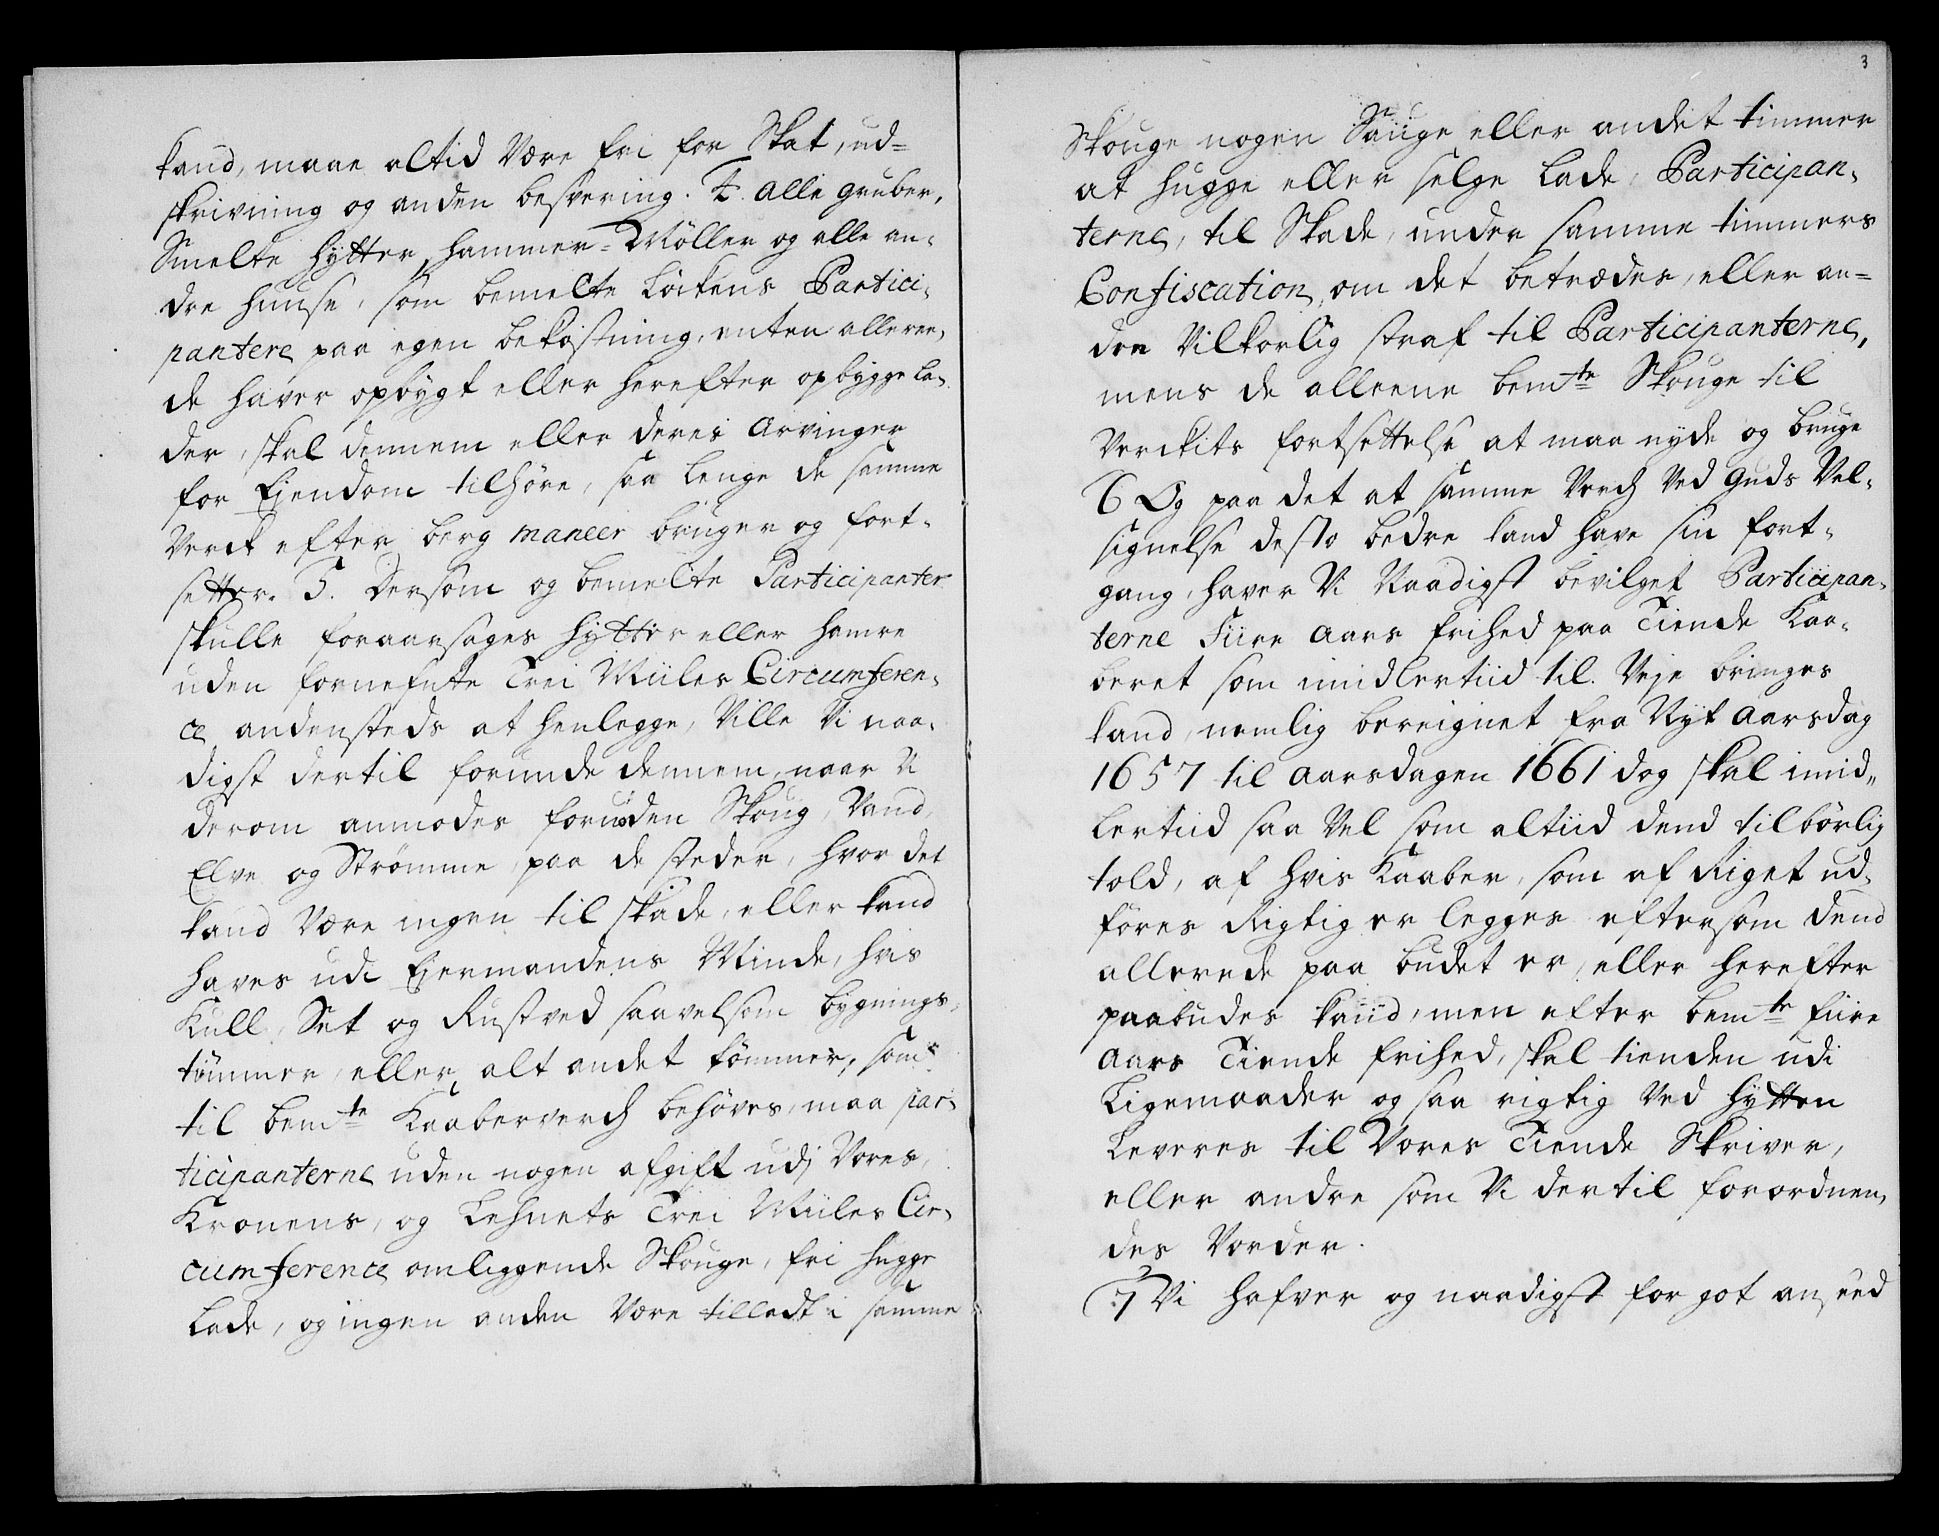 kand, maae altid Være fri for Skat, ud=
skrivning og anden besvering. 4. Alle gruber,
Smelte hytter, hammer=Møller og alle an,
dre huuse, som bemelte Løckens Partici,
pantere paa egen bekostning, enten alleree,
de haver opbygt eller herefter opbygge la,
der, skal dennem eller deres Arvinger
for Ejendom tilhöre, saa lenge de samme
Verck efter berg maneer bruger og fort,
setter. 5. Dersom og bemelte Participanter
skulle foraarsages hytter eller hamre
uden fornefnte Trei Miiles Circumferen,
ce andensteds at henlegge, Ville Vi naa,
digst dertil forunde dennem, naar Vi
derom anmodes foruden Skoug, Vand,
Elve og Strømme paa de steder, hvor det
kand Være ingen til skade, eller kand
haves udi Ejermandens Minde, hvis
Kull, Set og Rustved saavelsom bygnings,
tømmer, eller alt andet tømmer, som
til bemte Kaaberverch behöves, maa par,
ticipanterne uden nogen afgift udj Vores,
Kronens, og Lehnets Trei Miiles Cir,
cumference omliggende Skouge, fri hugge
Lade, og ingen anden Være tilladt i samme
3
Skouge nogen Sauge eller andet timmer
at hugge eller selge lade, Participan,
terne, til Skade, under samme timmers
Confiscation, om det betrædes, eller an=
den Vilkorlig straf til Participanterne,
mens de alleene bemte Skouge til
Verckits fortsettelse at maa nyde og bruge
6 Og paa det at samme Verch Ved Guds Vel,
signelse desto bedre kand have sin fort,
gang, haver Vi Naadigst bevilget Participan,
terne Fiire Aars frihed paa Tiende Kaa,
beret som imidlertiid til Veje bringes
kand, nemlig bereignet fra Nyt Aarsdag
1657 til Aarsdagen 1661 dog skal imid,
lertiid saa Vel som altiid dend tilbörlig
told, af hvis Kaaber, som af Riget ud,
föres Rigtig er legges eftersom dend
allerede paa budet er, eller herefter
paabudes kand, men efter bemte fiire
Aars Tiende frihed, skal tienden udi
Ligemaader og saa rigtig Ved Hytten
Leveres til Vores Tiende Skriver,
eller andre som Vi dertil forordnen,
des Vorder.
7 Vi hafver og naadigst for got anseed